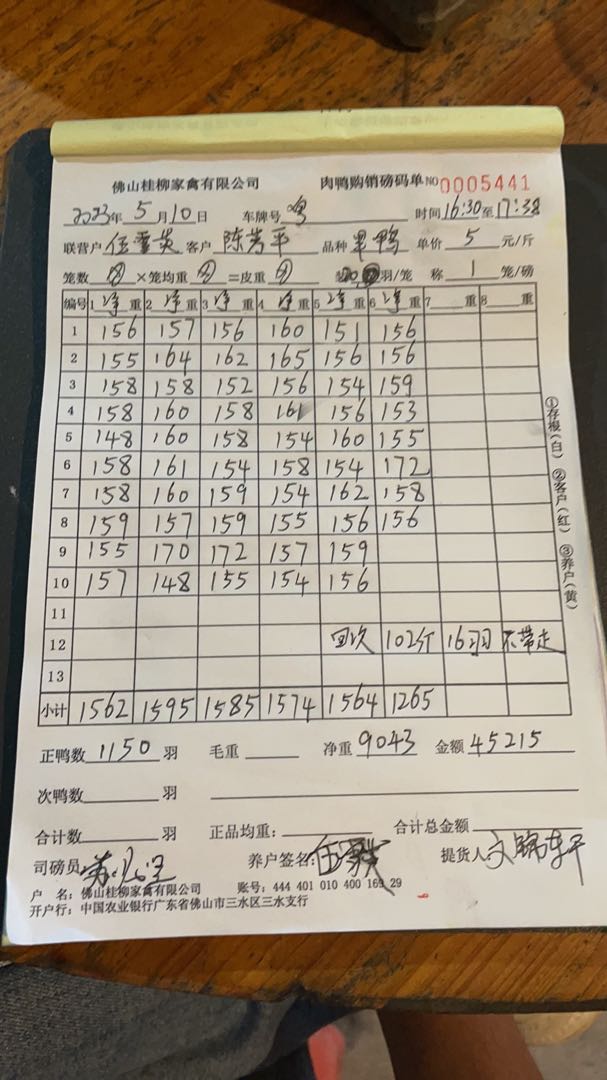 佛山桂柳家禽有限公司 肉鸭购销磅码单 NO 0005441
2023年 5月 10日 车牌号 粤 时间 16:30至 17:38
联营户 伍雪英 客户 陈芳平 品种 单价 5 元/斤
笼数 ×笼均重 =皮重 羽/笼 称 1 笼/磅
编号 1 净 重 2 净 重 3 净 重 4 净 重 5 净 重 6 净 重 7 重 8 重
1 156 157 156 160 151 156
2 155 164 162 165 156 156
3 158 158 152 156 154 159
4 158 160 158 161 156 153
5 148 160 158 154 160 155
6 158 161 154 158 154 172
7 158 160 159 154 162 158
8 159 157 159 155 156 156
9 155 170 172 157 159
10 157 148 155 154 156
11
12 回次 102斤 16羽 不带走
13
小计 1562 1595 1585 1574 1564 1265
正鸭数 1150 羽 毛重 净重 9043 金额 45215
次鸭数 羽
合计数 羽 正品均重: 合计总金额
司磅员 养户签名: 提货人:
户 名: 佛山桂柳家禽有限公司 账号: 444 401 010 400 29
开户行: 中国农业银行广东省佛山市三水区三水支行
①存根(白) ②客户(红) ③养户(黄)